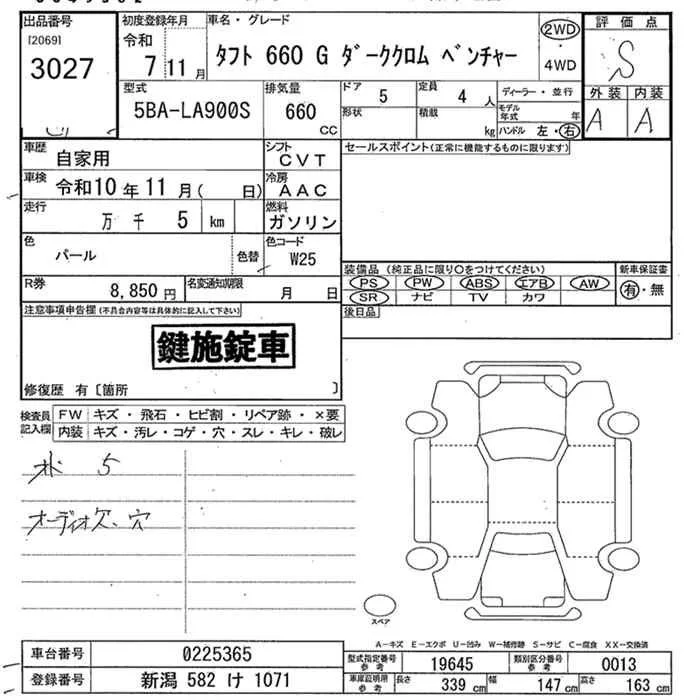 出品番号
[2069]
3027
初度登録年月
令和
7 11 月
車名・グレード
タフト 660 G ダーククロム ベンチャー
2WD
・
4WD
評価点
S
外装 内装
A A
型式
5BA-LA900S
排気量
660
CC
ドア
5
定員
4 人
形状
積載
kg
ディーラー・並行
モデル
年式 年
ハンドル 左・右
車歴
自家用
シフト
CVT
車検
令和10年11月( 日)
冷房
AAC
走行
万 千 5 km
燃料
ガソリン
色
パール
色替
色コード
W25
R券
8,850 円
名変通知期限
月 日
セールスポイント(正常に機能するものに限ります)
装備品 (純正品に限り○をつけてください)
PS PW ABS エアB AW
SR ナビ TV カワ
新車保証書
有・無
後日品
注意事項申告欄(不具合内容等は具体的に記入して下さい)
鍵施錠車
修復歴 有〔箇所 〕
検査員
記入欄
FW キズ・飛石・ヒビ割・リペア跡・×要
内装 キズ・汚レ・コゲ・穴・スレ・キレ・破レ
5
オーディオ欠、穴
スペア
A-キズ E-エクボ U-凹み W-補修跡 S-サビ C-腐食 XX-交換済
車台番号
0225365
登録番号
新潟 582 け 1071
型式指定番号
参考
19645
類別区分番号
参考
0013
車庫証明用
参考
長さ
339 cm
幅
147 cm
高さ
163 cm